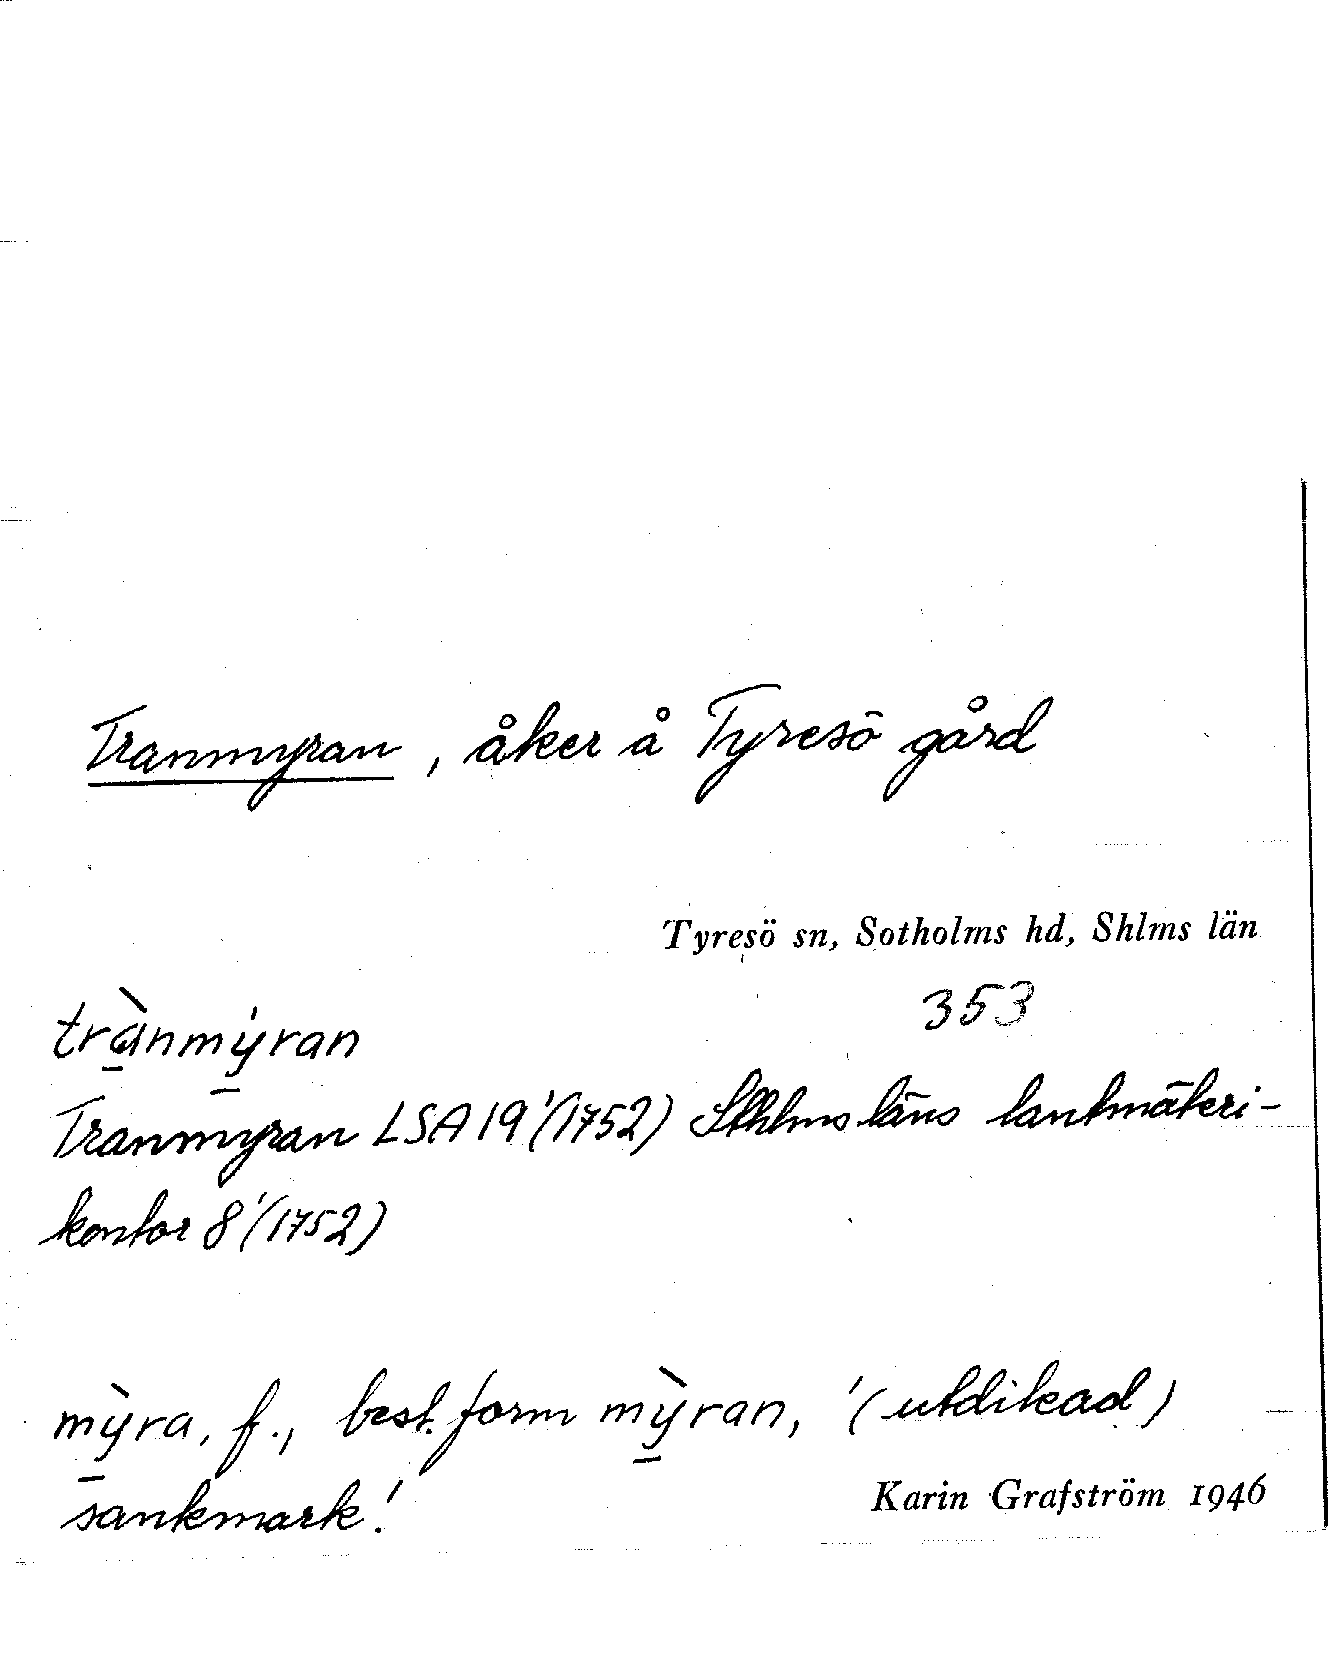 Tranmyran, åker å Tyresö gård
Tyresö sn, Sotholms hd, Shlms län
353
trànmy̍ran
Tranmyran LSA 19'(1752) Sthlms läns lantmäteri-
kontor 8'(1752)
mỳra, f., best. form mỳran, '(utdikad)
sankmark'.
Karin Grafström 1946